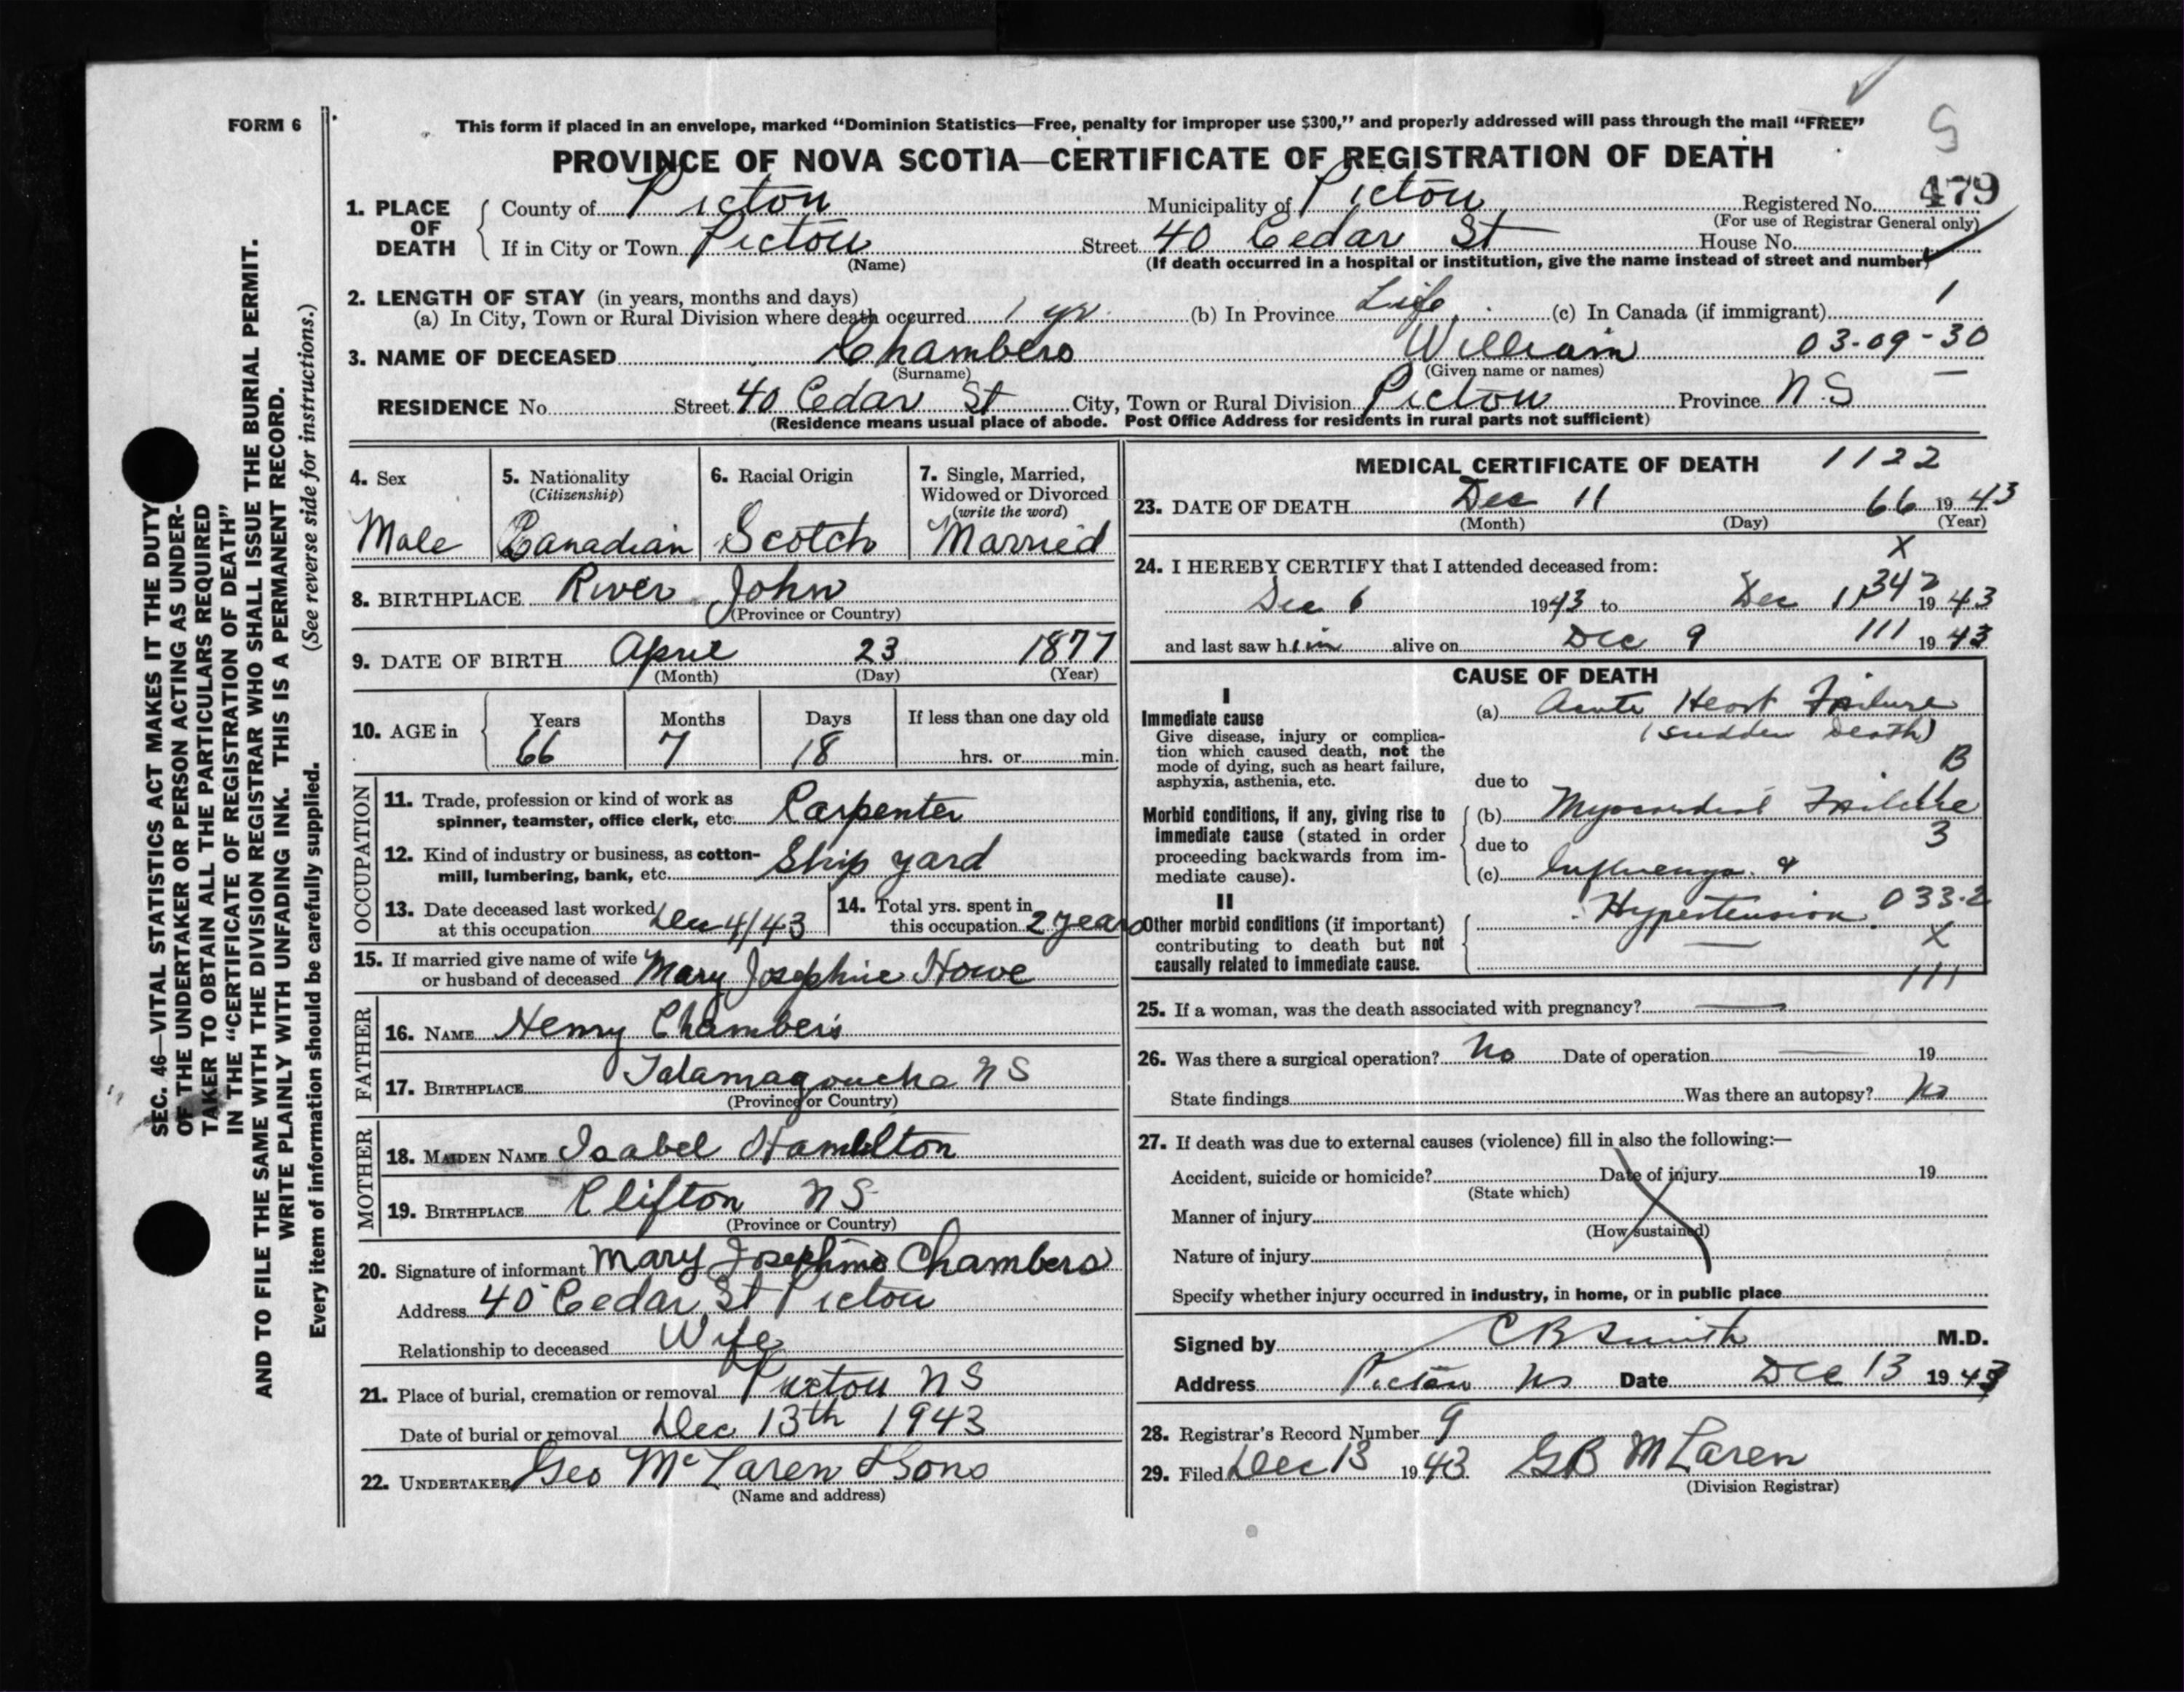 FORM 6
This form if placed in an envelope, marked “Dominion Statistics—Free, penalty for improper use $300,” and properly addressed will pass through the mail “FREE”
S
PROVINCE OF NOVA SCOTIA—CERTIFICATE OF REGISTRATION OF DEATH
479
1. PLACE OF DEATH County of Pictou Municipality of Pictou Registered No.
(For use of Registrar General only)
If in City or Town Pictou Street 40 Cedar St House No.
(Name) (If death occurred in a hospital or institution, give the name instead of street and number)
2. LENGTH OF STAY (in years, months and days)
(a) In City, Town or Rural Division where death occurred 1 yr. (b) In Province Life (c) In Canada (if immigrant) 1
3. NAME OF DECEASED Chambers William 03-09-30
(Surname) (Given name or names)
RESIDENCE No. Street 40 Cedar St City, Town or Rural Division Pictou Province N.S
(Residence means usual place of abode. Post Office Address for residents in rural parts not sufficient)
4. Sex
Male
5. Nationality
(Citizenship)
Canadian
6. Racial Origin
Scotch
7. Single, Married,
Widowed or Divorced
(write the word)
Married
8. BIRTHPLACE River John
(Province or Country)
9. DATE OF BIRTH April 23 1877
(Month) (Day) (Year)
10. AGE in Years Months Days If less than one day old
66 7 18 hrs. or min.
OCCUPATION
11. Trade, profession or kind of work as
spinner, teamster, office clerk, etc. Carpenter
12. Kind of industry or business, as cotton-
mill, lumbering, bank, etc. Ship yard
13. Date deceased last worked
at this occupation Dec 4/43
14. Total yrs. spent in
this occupation 2 years
15. If married give name of wife
or husband of deceased Mary Josephine Howe
FATHER
16. NAME Henry Chambers
17. BIRTHPLACE Tatamagouche NS
(Province or Country)
MOTHER
18. MAIDEN NAME Isabel Hamilton
19. BIRTHPLACE Clifton NS
(Province or Country)
20. Signature of informant Mary Josephine Chambers
Address 40 Cedar St Pictou
Relationship to deceased Wife
21. Place of burial, cremation or removal Pictou NS
Date of burial or removal Dec 13th 1943
22. UNDERTAKER Geo McLaren & Sons
(Name and address)
MEDICAL CERTIFICATE OF DEATH 1122
23. DATE OF DEATH Dec 11 66 1943
(Month) (Day) (Year)
X
24. I HEREBY CERTIFY that I attended deceased from:
Dec 6 1943 to Dec 11 342 1943
and last saw him alive on Dec 9 111 1943
CAUSE OF DEATH
I
Immediate cause
Give disease, injury or complica-
tion which caused death, not the
mode of dying, such as heart failure,
asphyxia, asthenia, etc.
(a) Acute Heart Failure
(sudden death)
B
due to
Morbid conditions, if any, giving rise to
immediate cause (stated in order
proceeding backwards from im-
mediate cause).
(b) Myocardial Failure
3
due to
(c) Influenza &
II
Other morbid conditions (if important)
contributing to death but not
causally related to immediate cause.
Hypertension 033.2
X
111
25. If a woman, was the death associated with pregnancy?
26. Was there a surgical operation? No Date of operation 19
State findings Was there an autopsy? No
27. If death was due to external causes (violence) fill in also the following:—
Accident, suicide or homicide? Date of injury 19
(State which)
Manner of injury
(How sustained)
Nature of injury
Specify whether injury occurred in industry, in home, or in public place
Signed by C B Smith M.D.
Address Pictou NS Date Dec 13 1943
28. Registrar's Record Number 9
29. Filed Dec 13 1943 G B McLaren
(Division Registrar)
SEC. 46—VITAL STATISTICS ACT MAKES IT THE DUTY
OF THE UNDERTAKER OR PERSON ACTING AS UNDER-
TAKER TO OBTAIN ALL THE PARTICULARS REQUIRED
IN THE “CERTIFICATE OF REGISTRATION OF DEATH”
AND TO FILE THE SAME WITH THE DIVISION REGISTRAR WHO SHALL ISSUE THE BURIAL PERMIT.
WRITE PLAINLY WITH UNFADING INK. THIS IS A PERMANENT RECORD.
Every item of information should be carefully supplied. (See reverse side for instructions.)